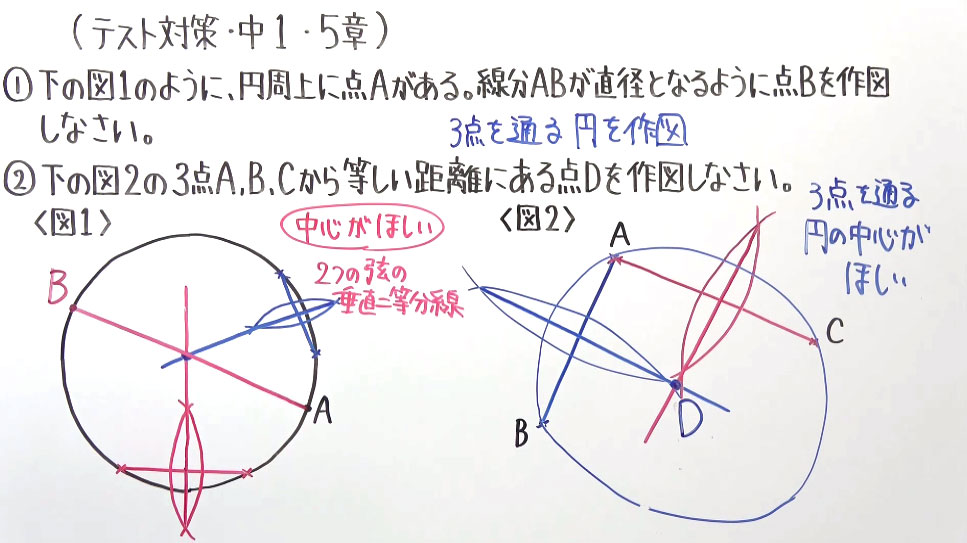 (テスト対策・中1・5章)
①下の図1のように、円周上に点Aがある。線分ABが直径となるように点Bを作図
しなさい。
3点を通る円を作図
②下の図2の3点A,B,Cから等しい距離にある点Dを作図しなさい。
〈図1〉
中心がほしい
2つの弦の
垂直二等分線
B
A
〈図2〉
3点を通る
円の中心が
ほしい
A
C
B
D